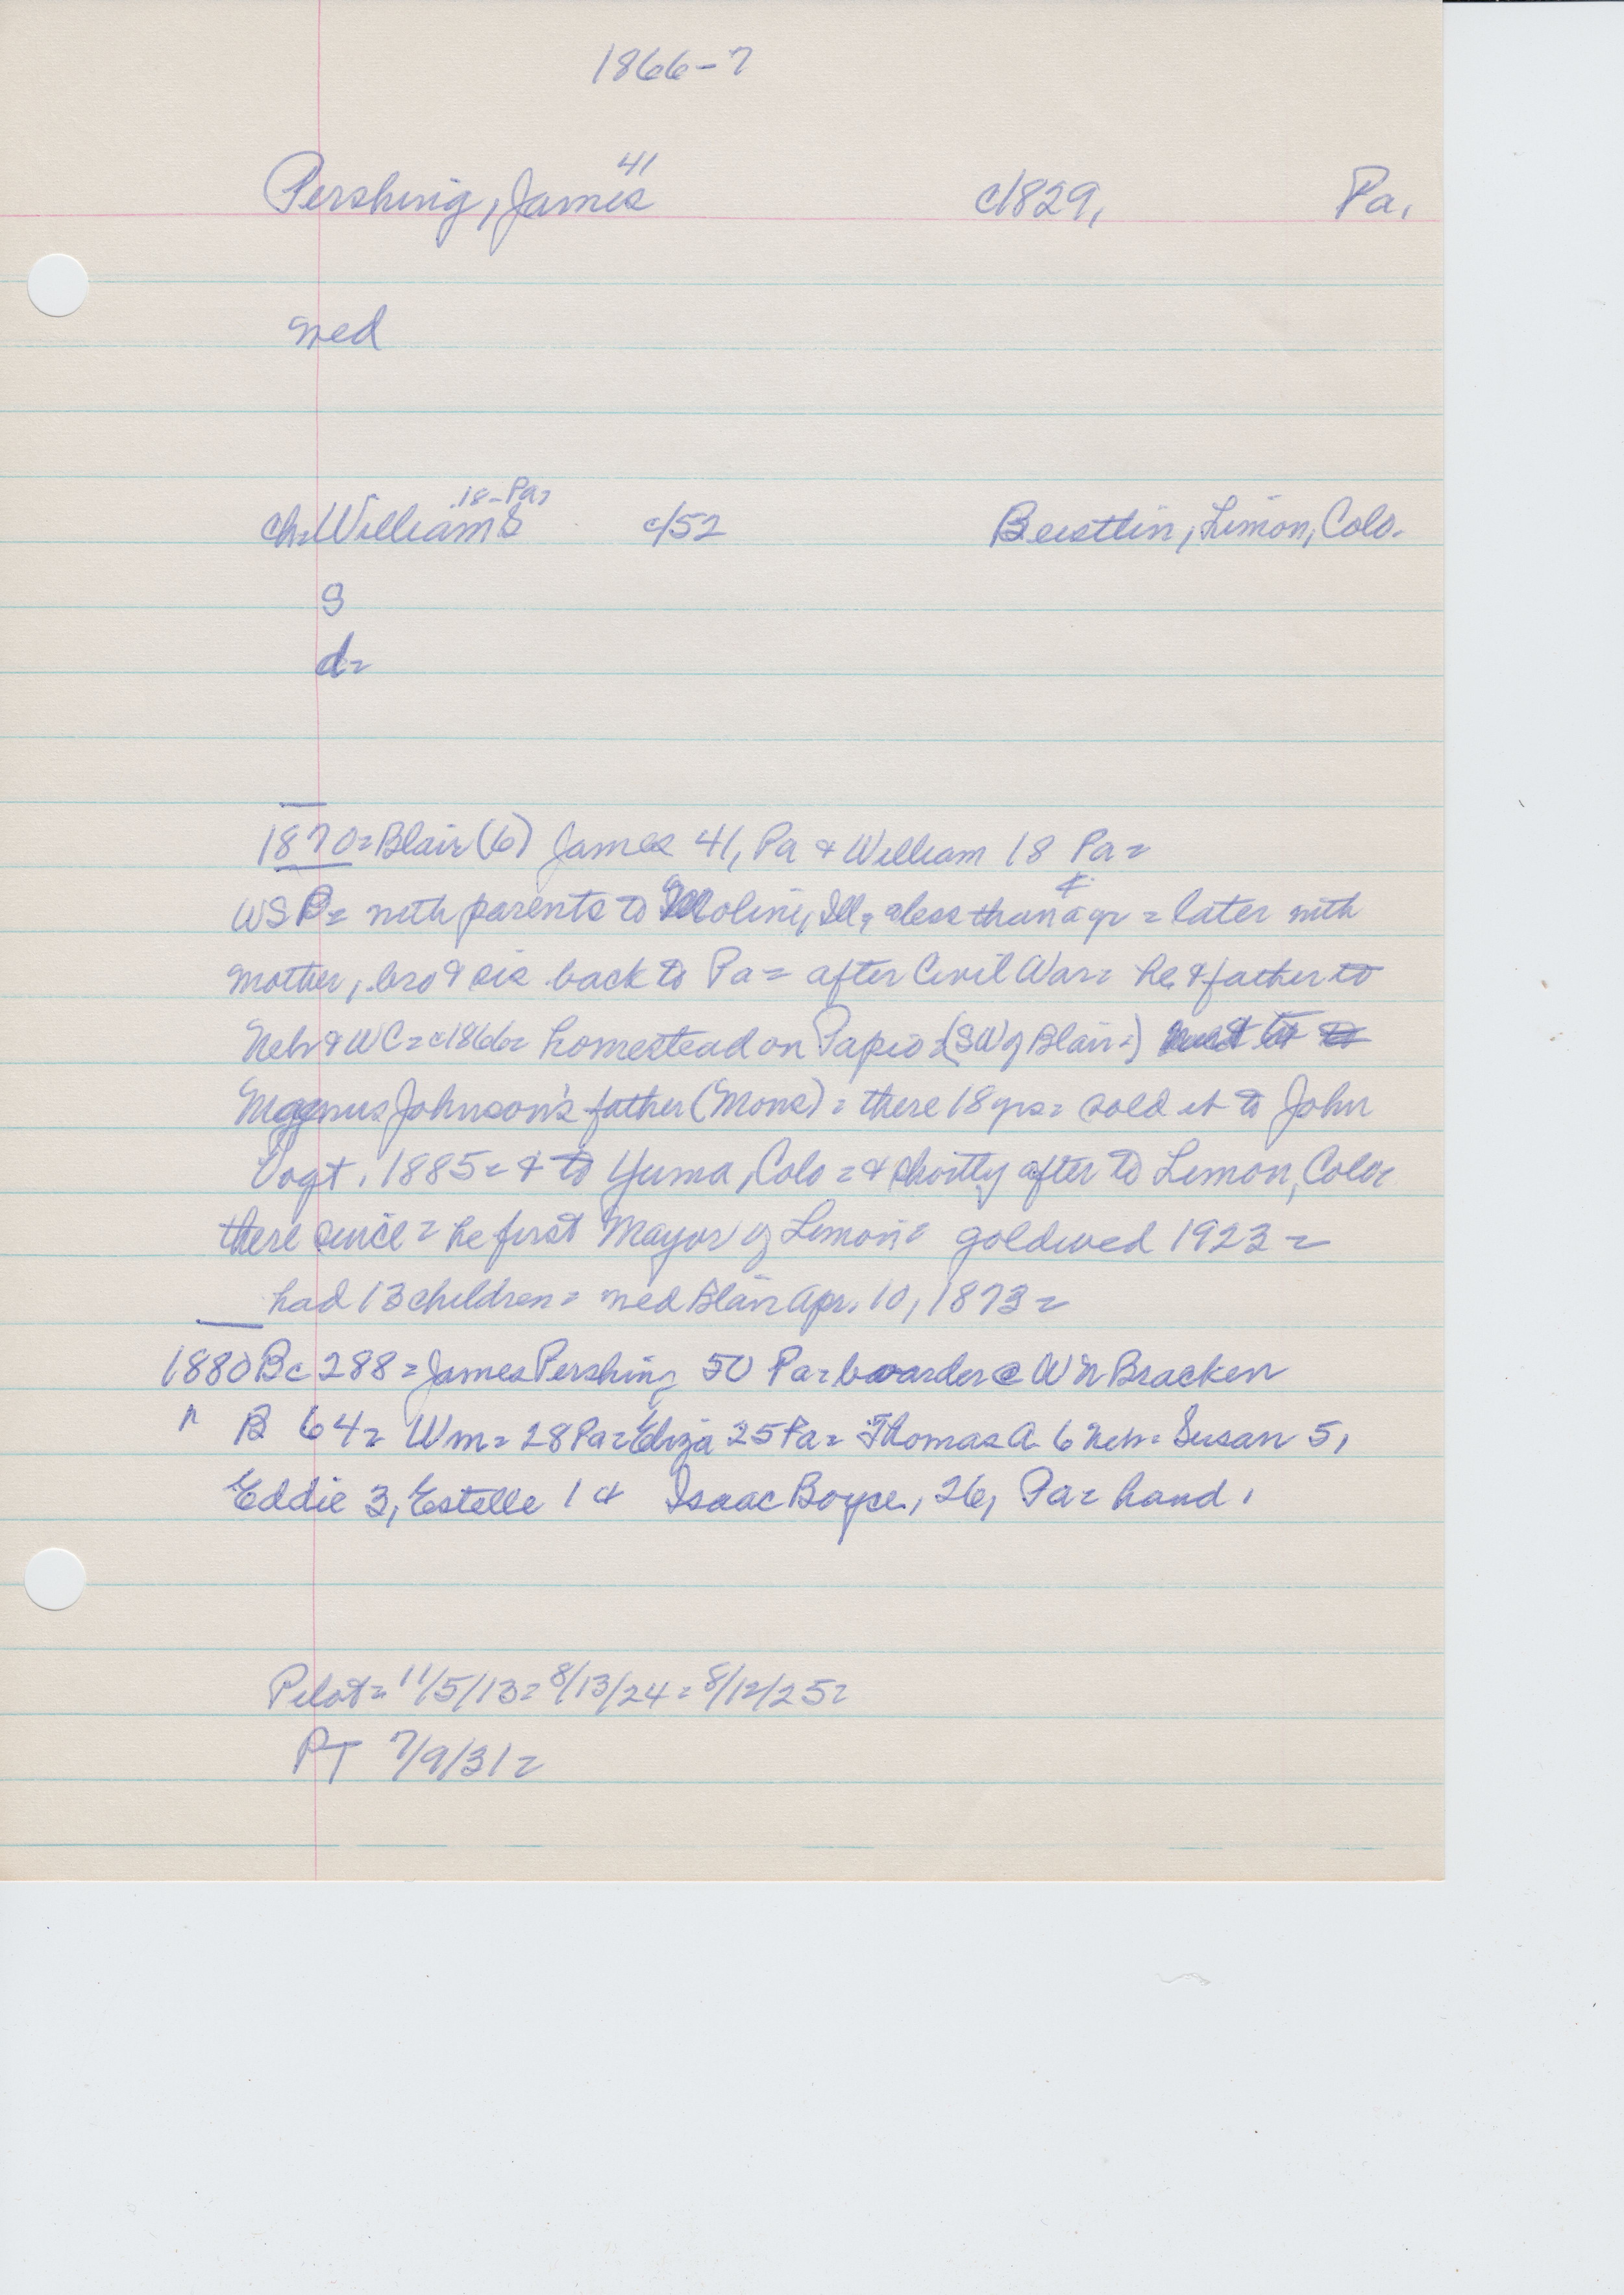 1866-7
41
Pershing, James c/1829, Pa.
med
18-Pa=
ch= William S c/52 Beistlin, Limon, Colo.
s
d=
1870= Blair (6) James 41, Pa & William 18 Pa=
&
WSP= with parents to Moline, Ill, less than a yr = later with
mother, bro & sis back to Pa = after Civil War= he & father to
Nebr & WC = c1866= homestead on Papio = (SW of Blair=) next to
Magnus Johnson's father (Mons) = there 18 yrs= sold it to John
Vogt. 1885= & to Yuma, Colo = & shortly after to Limon, Colo=
there since = he first Mayor of Limon= goldwed 1923=
had 13 children= med Blair Apr. 10, 1873=
1880 Bc 288= James Pershing 50 Pa= boarder c W N Bracken
" B 64= Wm= 28 Pa= Eliza 25 Pa= Thomas A 6 Neb= Susan 5,
Eddie 3, Estelle 1 & Isaac Boyce, 26, Pa= hand.
Pilot= 11/5/13= 8/13/24= 8/12/25=
PT 7/9/31=